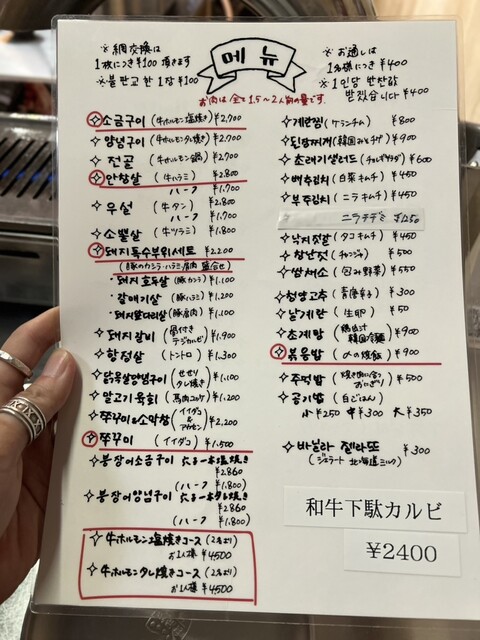 ※網交換は
1枚につき¥100頂きます
※불판교환 1장 ¥100
메뉴
※お通しは
1名様につき ¥400
※1인당 반찬값
받겠습니다 ¥400
お肉は全て1.5〜2人前の量です。
✧소금구이 (牛ホルモン塩焼き) ¥2,700
✧양념구이 (牛ホルモンタレ焼き) ¥2,700
✧전골 (牛ホルモン鍋) ¥2,700
✧안창살 (牛ハラミ) ¥2.800
ハーフ ¥1.700
✧우설 (牛タン) ¥2.800
ハーフ ¥1.700
✧소뽈살 (牛ツラミ) ¥1.800
✧돼지특수부위세트 ¥2.200
(豚のカシラ・ハラミ・肩肉 盛合せ)
・돼지호두살 (豚カシラ) ¥1.100
・갈매기살 (豚ハラミ) ¥1.200
・돼지앞다리살 (豚肩肉) ¥1.100
✧돼지갈비 (骨付きテジカルビ) ¥1.900
✧항정살 (トントロ) ¥1.300
✧닭목살양념구이 (せせりタレ焼き) ¥1,100
✧말고기육회 (馬肉ユッケ) ¥1.200
✧쭈꾸미&소막창 (イイダコ&アカセン) ¥2,200
✧쭈꾸미 (イイダコ) ¥1.500
✧붕장어소금구이 穴子一本塩焼き
¥2860
(ハーフ ¥1.800)
✧붕장어양념구이 穴子一本タレ焼き
¥2860
(ハーフ ¥1.800)
✧牛ホルモン塩焼きコース (2名より)
お1人様 ¥4500
✧牛ホルモンタレ焼きコース (2名より)
お1人様 ¥4,500
✧계란찜 (ケランチム) ¥800
✧된장찌개 (韓国みそチゲ) ¥900
✧초레기샐러드 (チョレギサラダ) ¥600
✧배추김치 (白菜キムチ) ¥450
✧부추김치 (ニラキムチ) ¥450
ニラチヂミ ¥1250
✧낙지젓갈 (タコキムチ) ¥450
✧창난젓 (チャンジャ) ¥500
✧쌈채소 (包み野菜) ¥550
✧청양고추 (青唐辛子) ¥300
✧날계란 (生卵) ¥50
✧초계탕 (鶏出汁韓国冷麺) ¥900
✧볶음밥 (〆の焼飯) ¥900
✧주먹밥 (焼き肉に合うおにぎり) ¥500
✧공기밥 (白ごはん)
小¥250 中¥300 大¥350
✧바닐라 젤라또 ¥300
(ジェラート 北海道ミルク)
和牛下駄カルビ
¥2400